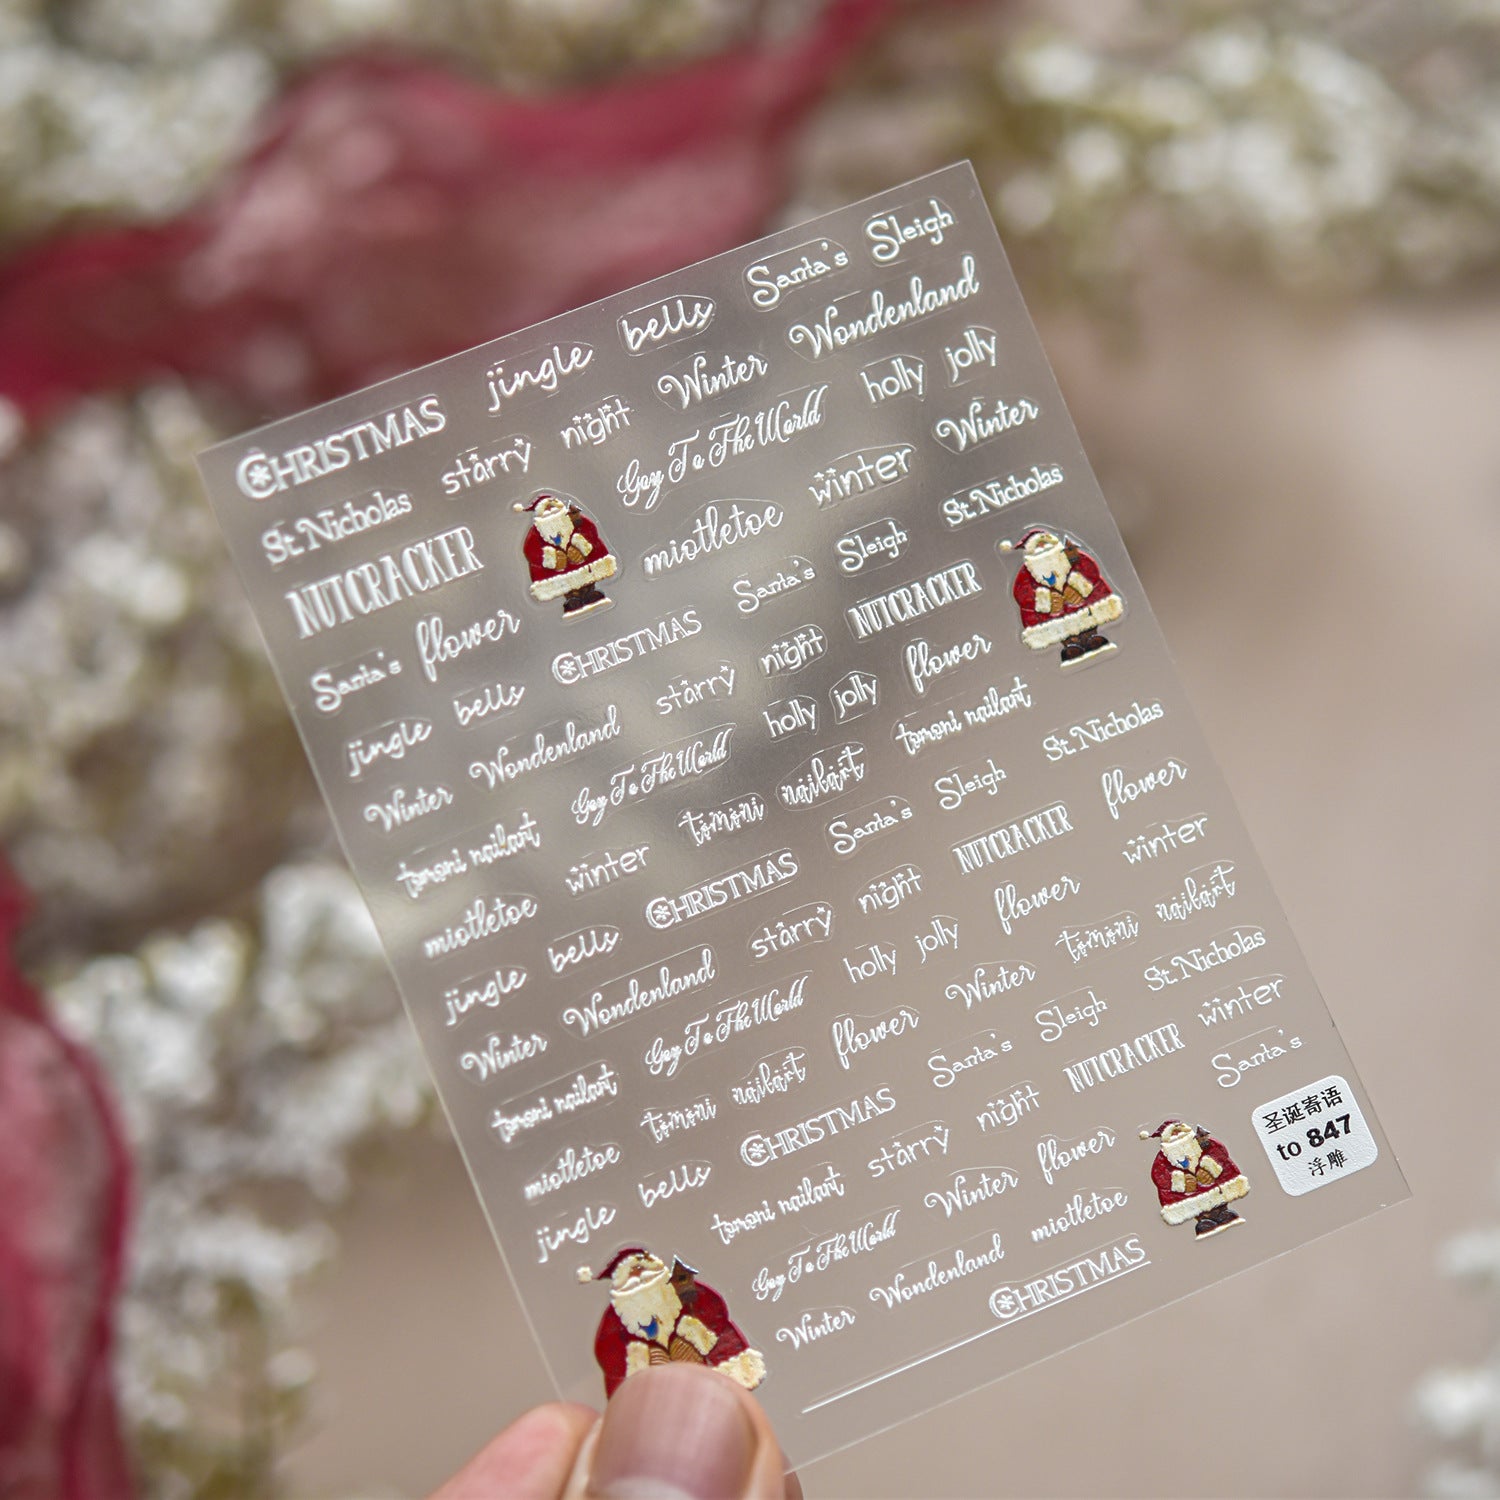 CHRISTMAS jingle bells Santa's Sleigh
St. Nicholas starry night Winter Wonderland
NUTCRACKER Goy To The World holly jolly
Santa's flower miotletoe winter Winter
CHRISTMAS Santa's Sleigh St. Nicholas
jingle bells starry night NUTCRACKER
Winter Wonderland holly jolly flower
Goy To The World tomoni nailart
tomoni nailart winter tomoni nailart Santa's Sleigh St. Nicholas
miotletoe CHRISTMAS NUTCRACKER flower
jingle bells starry night winter
Winter Wonderland holly jolly flower tomoni nailart
Goy To The World Winter St. Nicholas
tomoni nailart tomoni nailart flower Santa's Sleigh winter
miotletoe CHRISTMAS NUTCRACKER Santa's
jingle bells starry night
tomoni nailart Winter flower
Goy To The World miotletoe
Winter Wonderland
CHRISTMAS
圣诞寄语
to 847
浮雕